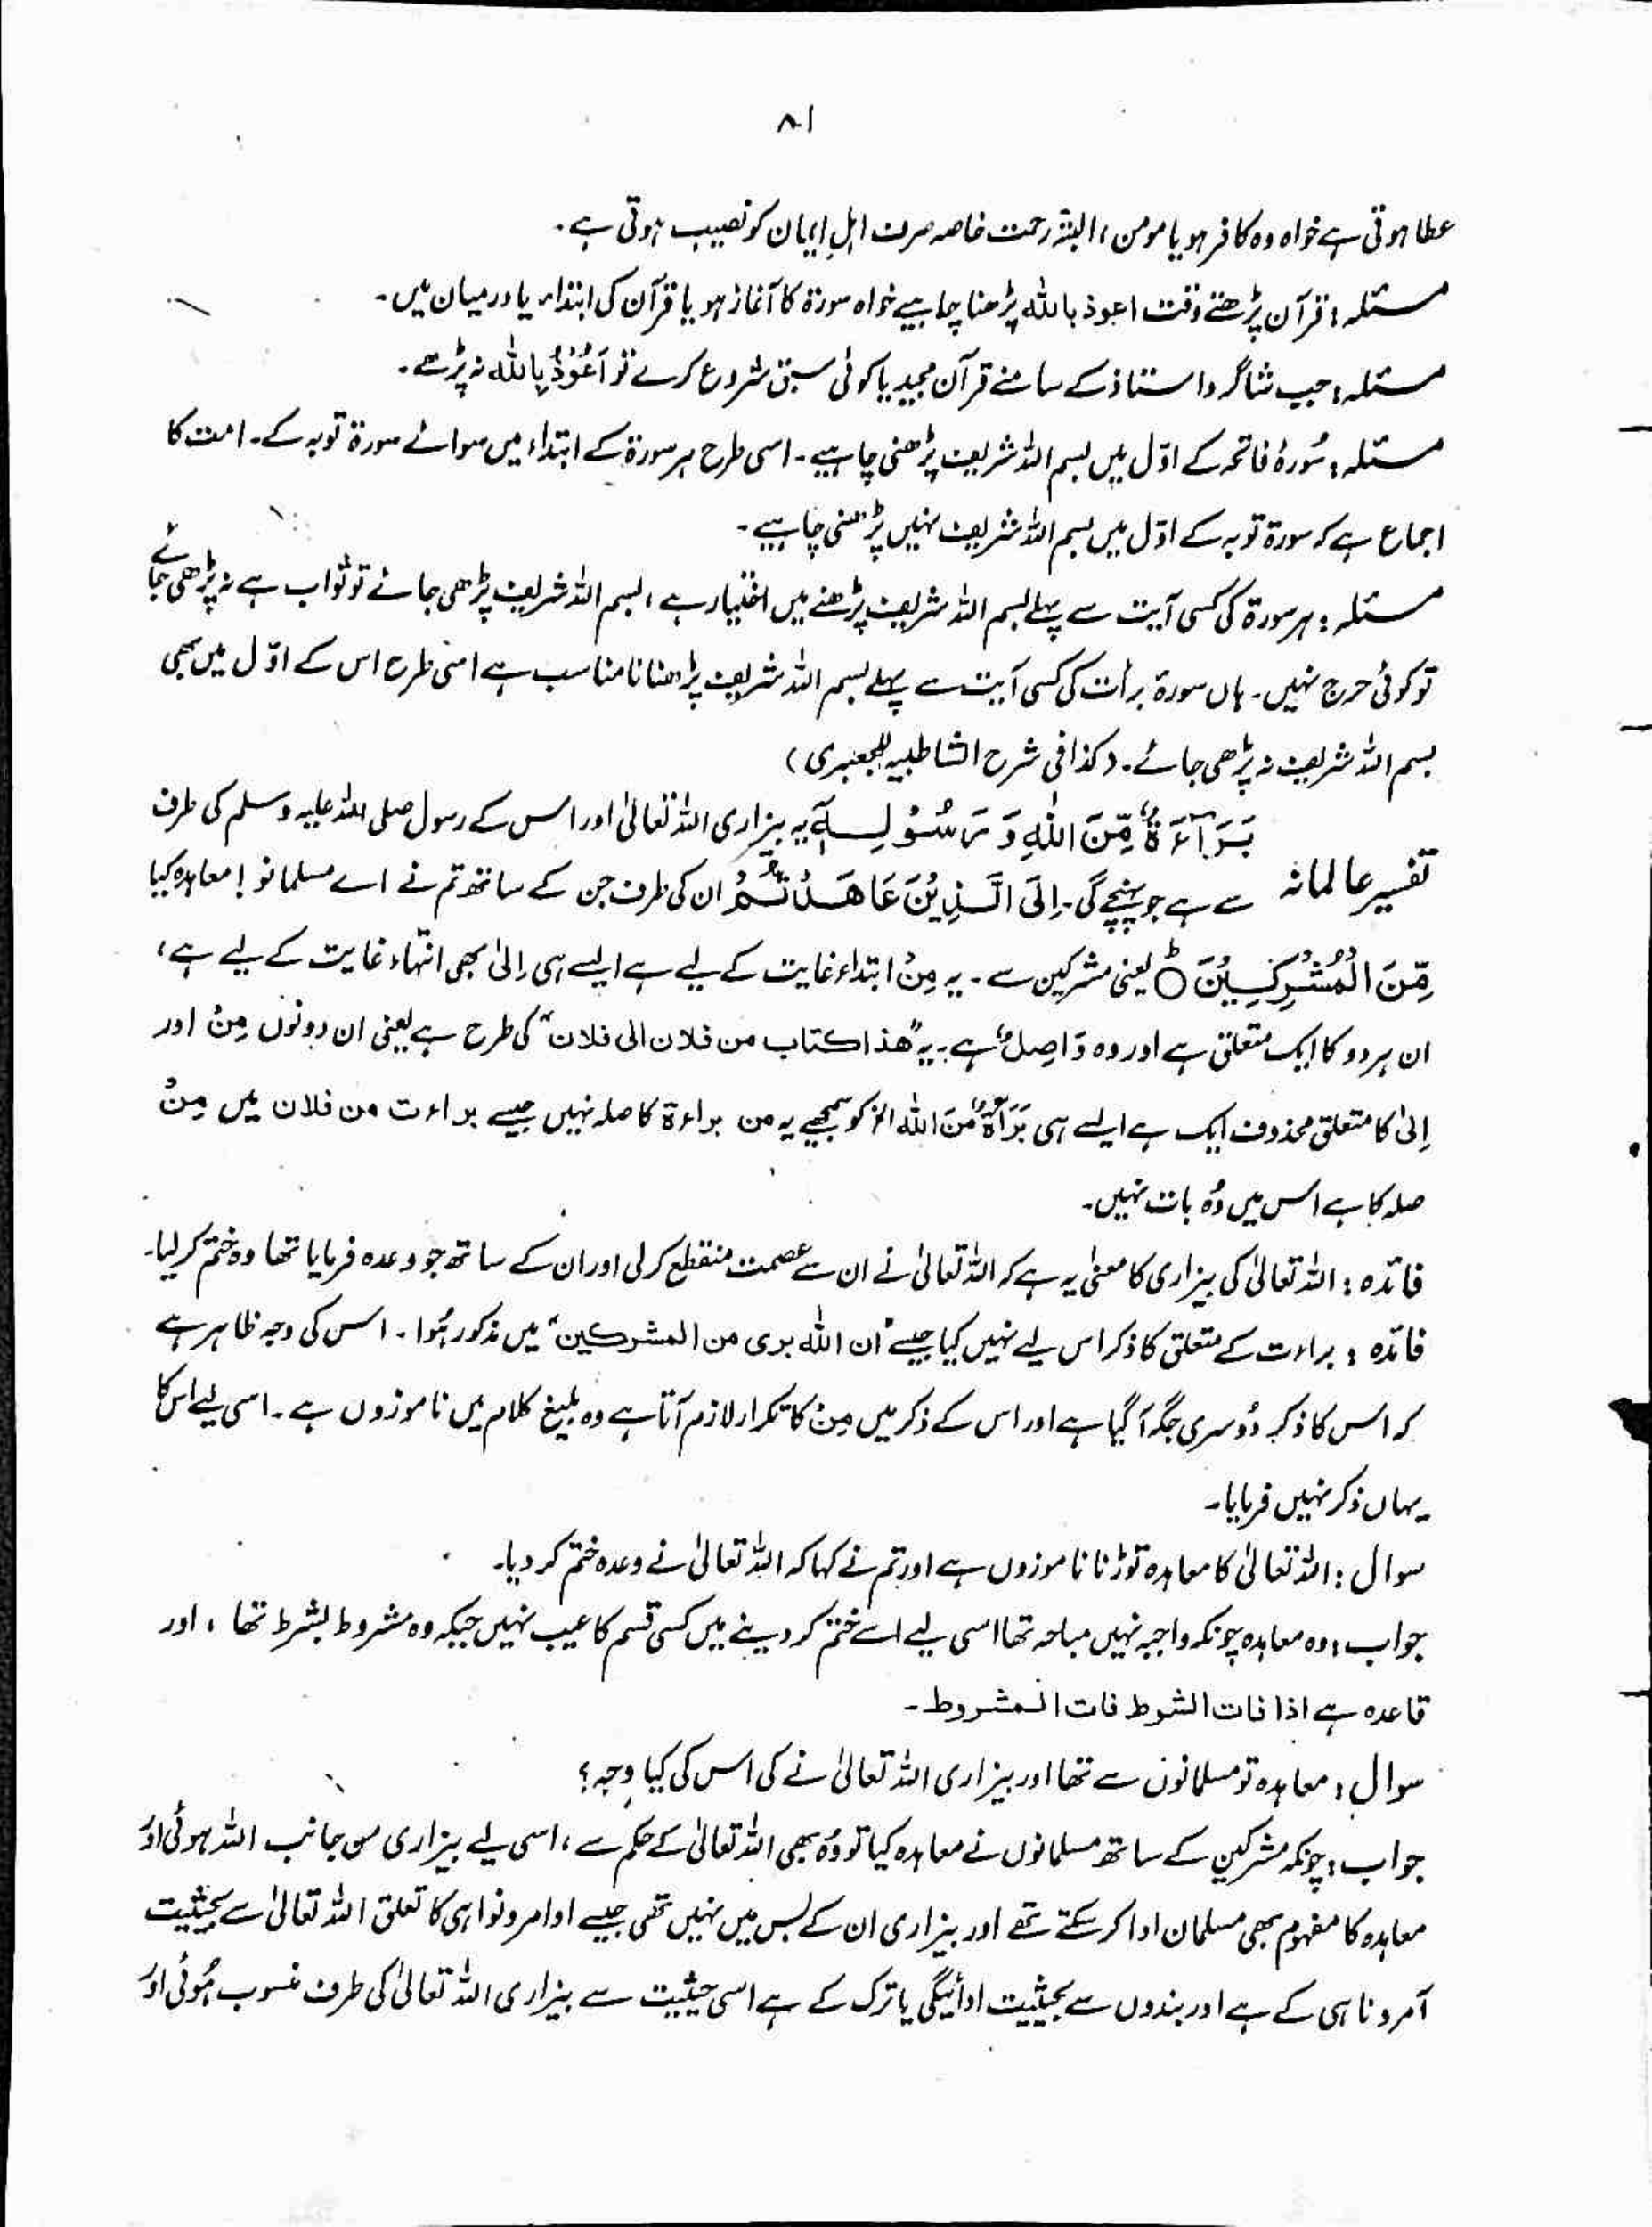 ۸۱
عطا ہوتی ہے خواہ وہ کافر ہو یا مومن، البتہ رحمت خاصہ صرف اہلِ ایمان کو نصیب ہوتی ہے۔
مسئلہ: قرآن پڑھتے وقت اعوذ باللہ پڑھنا چاہیے خواہ سورۃ کا آغاز ہو یا قرآن کی ابتداء یا درمیان میں۔
مسئلہ: جب شاگرد استاذ کے سامنے قرآن مجید یا کوئی سبق شروع کرے تو اَعُوْذُ بِاللہ نہ پڑھے۔
مسئلہ: سُورۂ فاتحہ کے اوّل میں بسم اللہ شریف پڑھنی چاہیے۔ اسی طرح ہر سورۃ کے ابتداء میں سوائے سورۃ توبہ کے۔ امت کا
اجماع ہے کہ سورۃ توبہ کے اوّل میں بسم اللہ شریف نہیں پڑھنی چاہیے۔
مسئلہ: ہر سورۃ کی کسی آیت سے پہلے بسم اللہ شریف پڑھنے میں اختیار ہے، بسم اللہ شریف پڑھی جائے تو ثواب ہے نہ پڑھی جائے
تو کوئی حرج نہیں۔ ہاں سورۃ برأت کی کسی آیت سے پہلے بسم اللہ شریف پڑھنا نامناسب ہے اسی طرح اس کے اوّل میں بھی
بسم اللہ شریف نہ پڑھی جائے۔ (کذا فی شرح الشاطبیہ للجعبری)
بَرَآءَةٌ مِّنَ اللّٰہِ وَ رَسُوْلِہٖٓ یہ بیزاری اللہ تعالیٰ اور اس کے رسول صلی اللہ علیہ وسلم کی طرف
تفسیر عالمانہ سے ہے جو پہنچے گی۔ اِلَی الَّذِیْنَ عَاھَدْتُّمْ ان کی طرف جن کے ساتھ تم نے اے مسلمانو! معاہدہ کیا
مِّنَ الْمُشْرِکِیْنَ ○ یعنی مشرکین سے۔ یہ مِنْ ابتداء غایت کے لیے ہے ایسے ہی اِلیٰ بھی انتہاء غایت کے لیے ہے،
ان ہر دو کا ایک متعلق ہے اور وہ وَاصِلٌ ہے۔ یہ "ھذا کتاب من فلان الی فلان" کی طرح ہے یعنی ان دونوں مِنْ اور
اِلیٰ کا متعلق محذوف ایک ہے ایسے ہی بَرَآءَةٌ مِّنَ اللہ الخ کو سمجھیے یہ من براءۃ کا صلہ نہیں جیسے براءت من فلان میں مِنْ
صلہ کا ہے اس میں وُہ بات نہیں۔
فائدہ: اللہ تعالیٰ کی بیزاری کا معنیٰ یہ ہے کہ اللہ تعالیٰ نے ان سے عصمت منقطع کر لی اور ان کے ساتھ جو وعدہ فرمایا تھا وہ ختم کر لیا۔
فائدہ: براءت کے متعلق کا ذکر اس لیے نہیں کیا جیسے "ان اللّٰہ بری من المشرکین" میں مذکور ہُوا۔ اس کی وجہ ظاہر ہے
کہ اس کا ذکر دُوسری جگہ آگیا ہے اور اس کے ذکر میں مِنْ کا تکرار لازم آتا ہے وہ بلیغ کلام میں ناموزوں ہے۔ اسی لیے اس کا
یہاں ذکر نہیں فرمایا۔
سوال: اللہ تعالیٰ کا معاہدہ توڑنا ناموزوں ہے اور تم نے کہا کہ اللہ تعالیٰ نے وعدہ ختم کر دیا۔
جواب: وہ معاہدہ چونکہ واجبہ نہیں مباحہ تھا اسی لیے اسے ختم کر دینے میں کسی قسم کا عیب نہیں جبکہ وہ مشروط بشرط تھا، اور
قاعدہ ہے اذا فات الشرط فات المشروط۔
سوال: معاہدہ تو مسلمانوں سے تھا اور بیزاری اللہ تعالیٰ نے کی اس کی کیا وجہ؟
جواب: چونکہ مشرکین کے ساتھ مسلمانوں نے معاہدہ کیا تو وُہ بھی اللہ تعالیٰ کے حکم سے، اسی لیے بیزاری من جانب اللہ ہوئی اور
معاہدہ کا مفہوم بھی مسلمان ادا کر سکتے تھے اور بیزاری ان کے بس میں نہیں تھی جیسے اوامر و نواہی کا تعلق اللہ تعالیٰ سے بحیثیت
آمر و ناہی کے ہے اور بندوں سے بحیثیت ادائیگی یا ترک کے ہے اسی حیثیت سے بیزاری اللہ تعالیٰ کی طرف منسوب ہُوئی اور